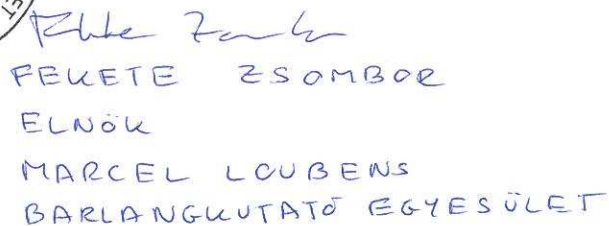 FEKETE ZSOMBOR
ELNÖK
MARCEL LOUBENS
BARLANGKUTATÓ EGYESÜLET